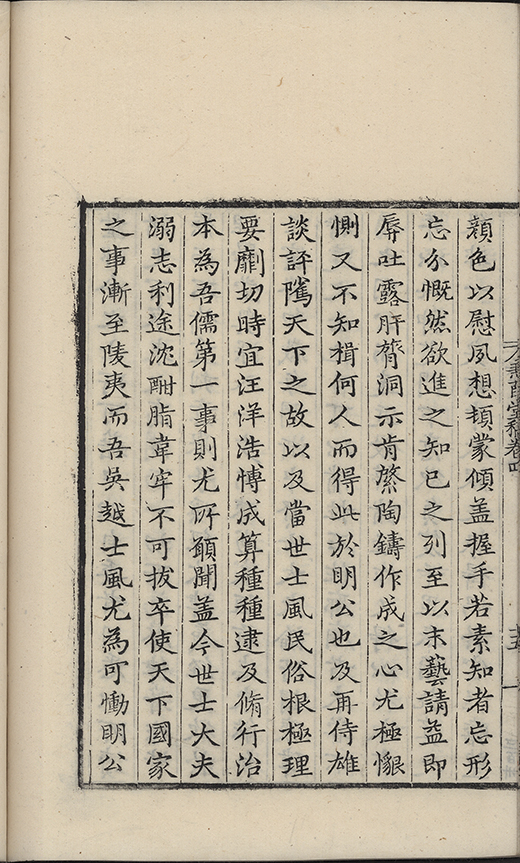 顏色以慰夙想頓蒙傾蓋握手若素知者忘形
忘分慨然欲進之知已之列至以末藝請益即
辱吐露肝膂洞示肯綮陶鑄作成之心尤極懇
惻又不知楫何人而得此於明公也及再侍雄
談評隲天下之故以及當世士風民俗根極理
要劘切時宜汪洋浩博成算種種逮及脩行治
本為吾儒第一事則尤所願聞盖今世士大夫
溺志利途沈酣脂韋牢不可拔卒使天下國家
之事漸至陵夷而吾吳越士風尤為可慟明公